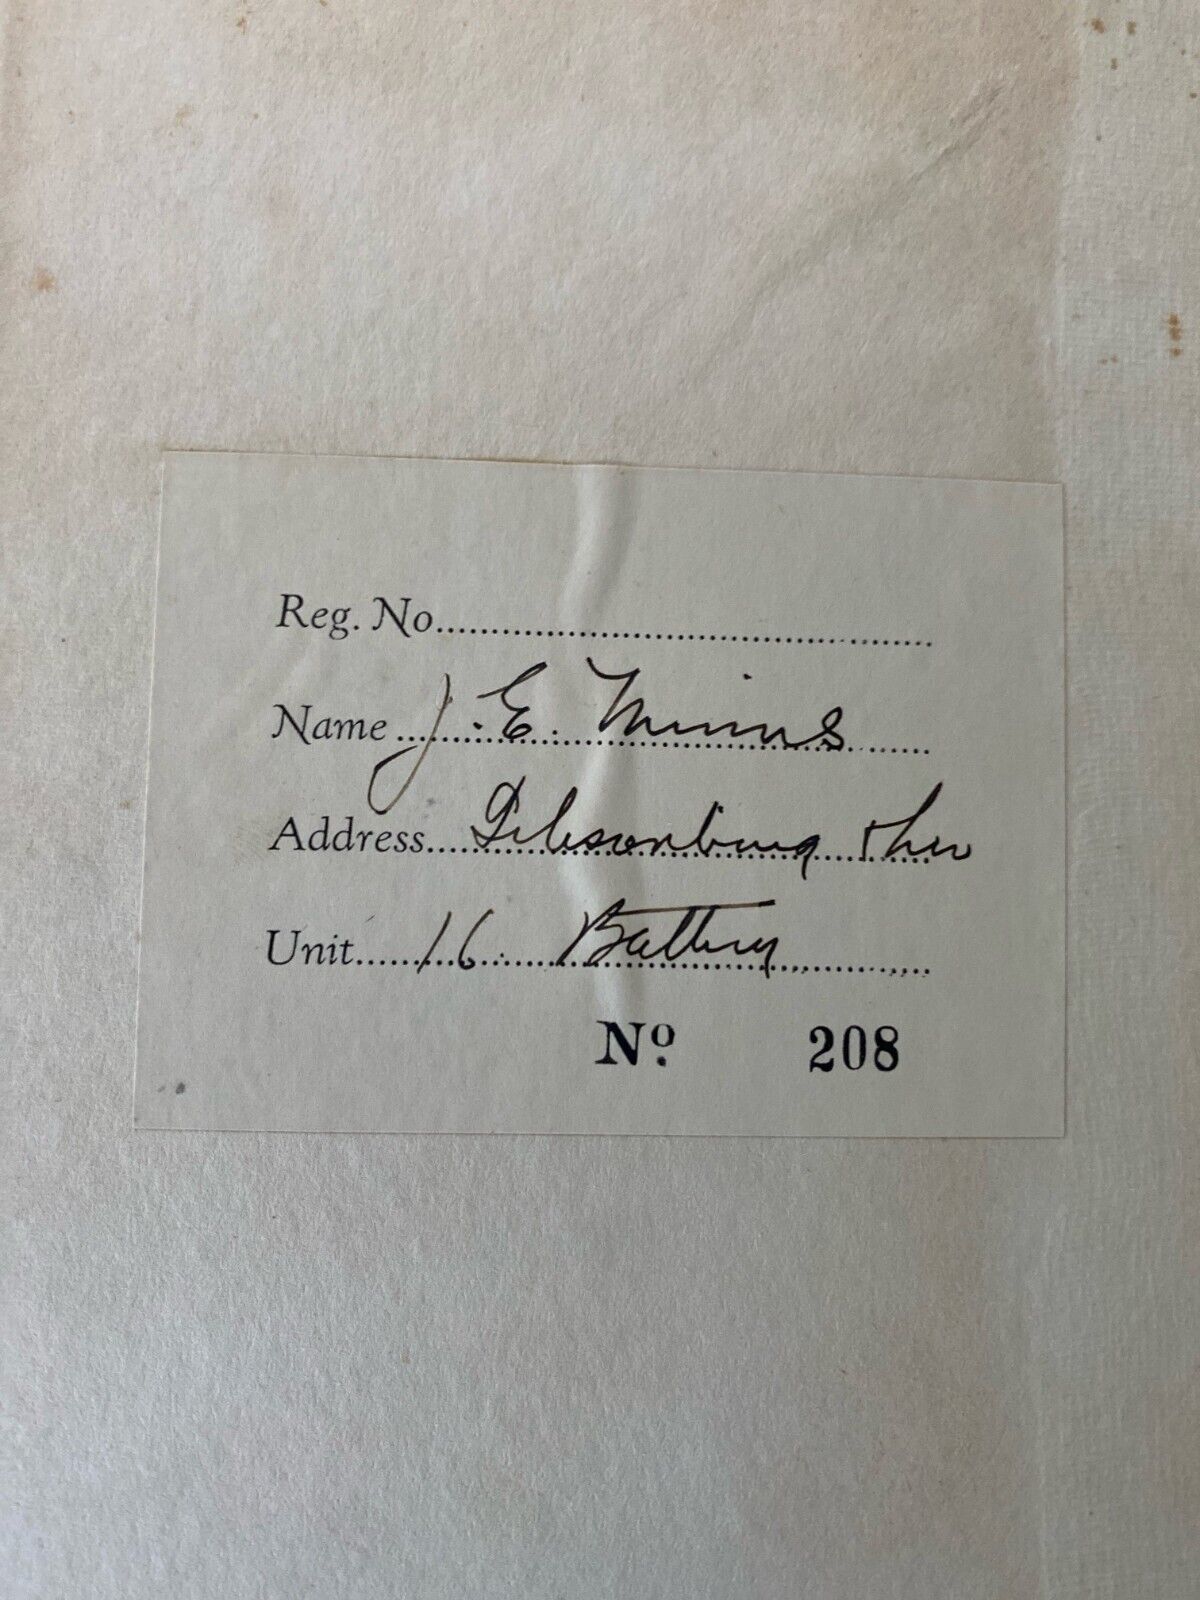 Reg. No
Name J. E. Mims
Address Gibsonburg Ohio
Unit 16 Battery
Nº 208